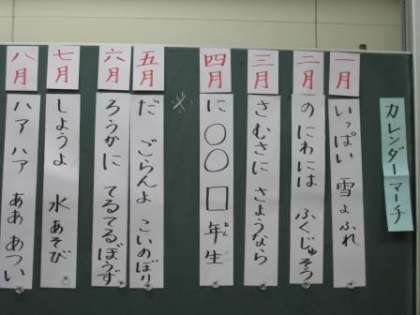 カレンダーマーチ
一月
いっぱい 雪よふれ
二月
のにわには ふくじゅそう
三月
さむさに さようなら
四月
に〇〇 □年生
五月
だ ごらんよ こいのぼり
六月
ろうかに てるてるぼうず
七月
しようよ 水あそび
八月
ハア ハア ああ あつい